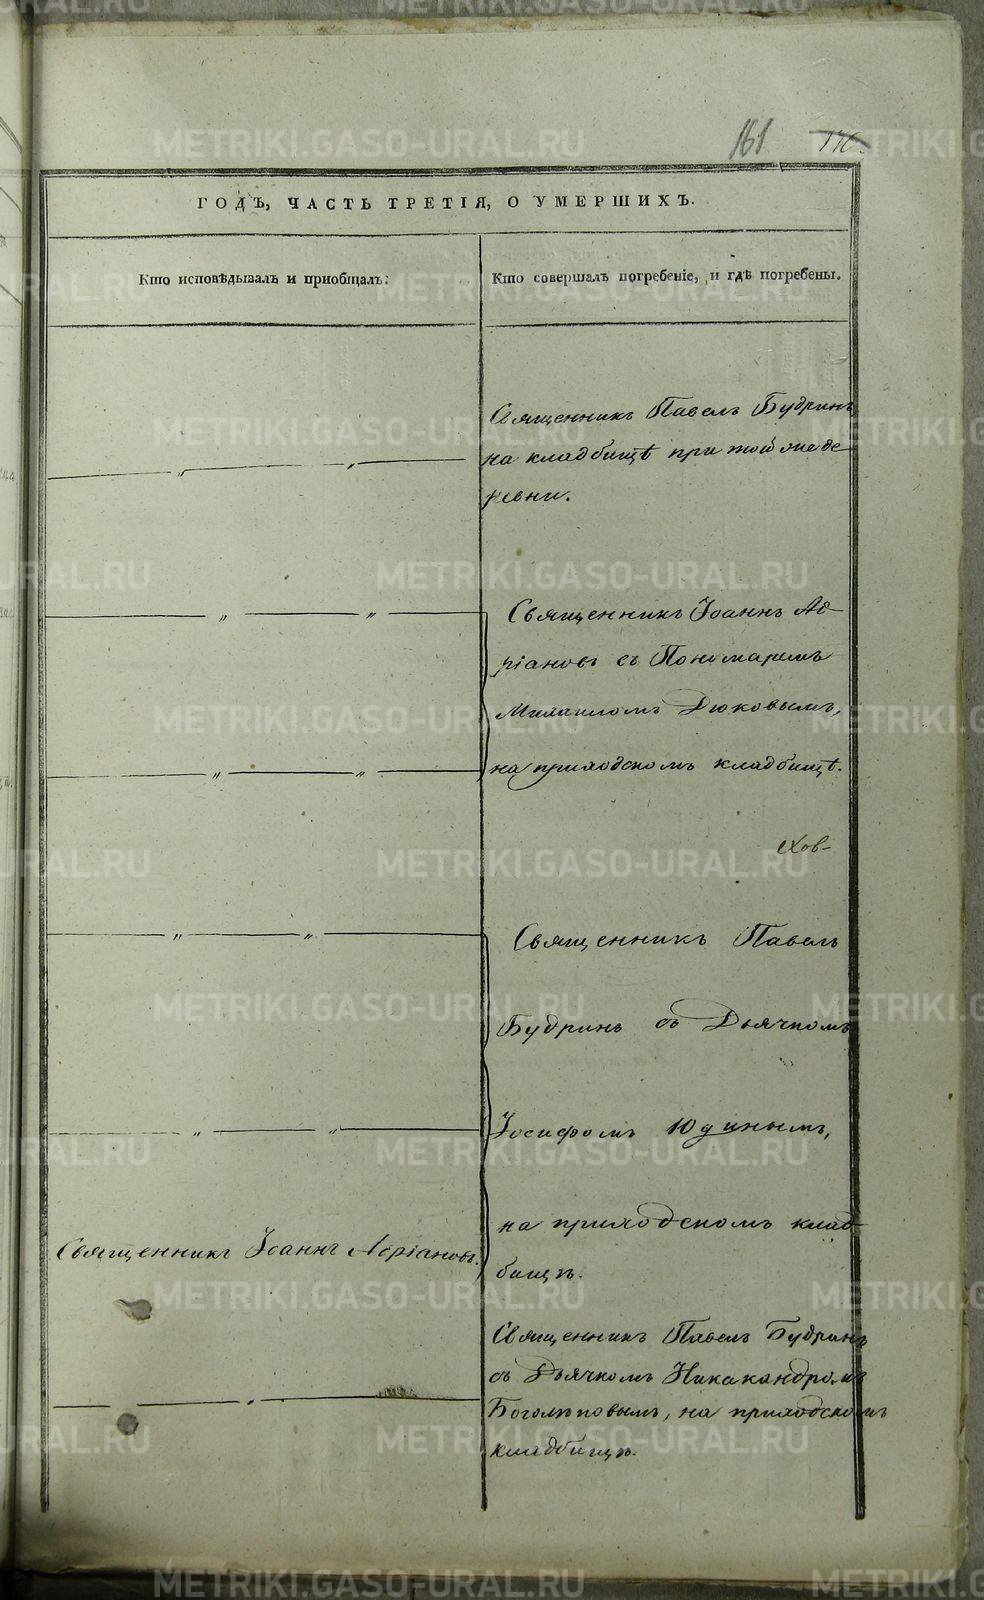 161 170.
ГОДЪ, ЧАСТЬ ТРЕТІЯ, О УМЕРШИХЪ.
Кто исповѣдывалъ и приобщалъ:
Кто совершалъ погребеніе, и гдѣ погребены.
Священникъ Павелъ Будринъ
на кладбищѣ при той же де
ревни.
Священникъ Іоаннъ Ад-
ріановъ съ Пономаремъ
Михаиломъ Дюковымъ,
на приходскомъ кладбищѣ.
Священникъ Павелъ
Будринъ съ Дьячкомъ
Іосифомъ Юдинымъ,
на приходскомъ клад
бищѣ.
Священникъ Іоаннъ Адріановъ.
Священникъ Павелъ Будринъ
съ Дьячкомъ Никакандромъ
Боголѣповымъ, на приходскомъ
кладбищѣ.
METRIKI.GASO-URAL.RU